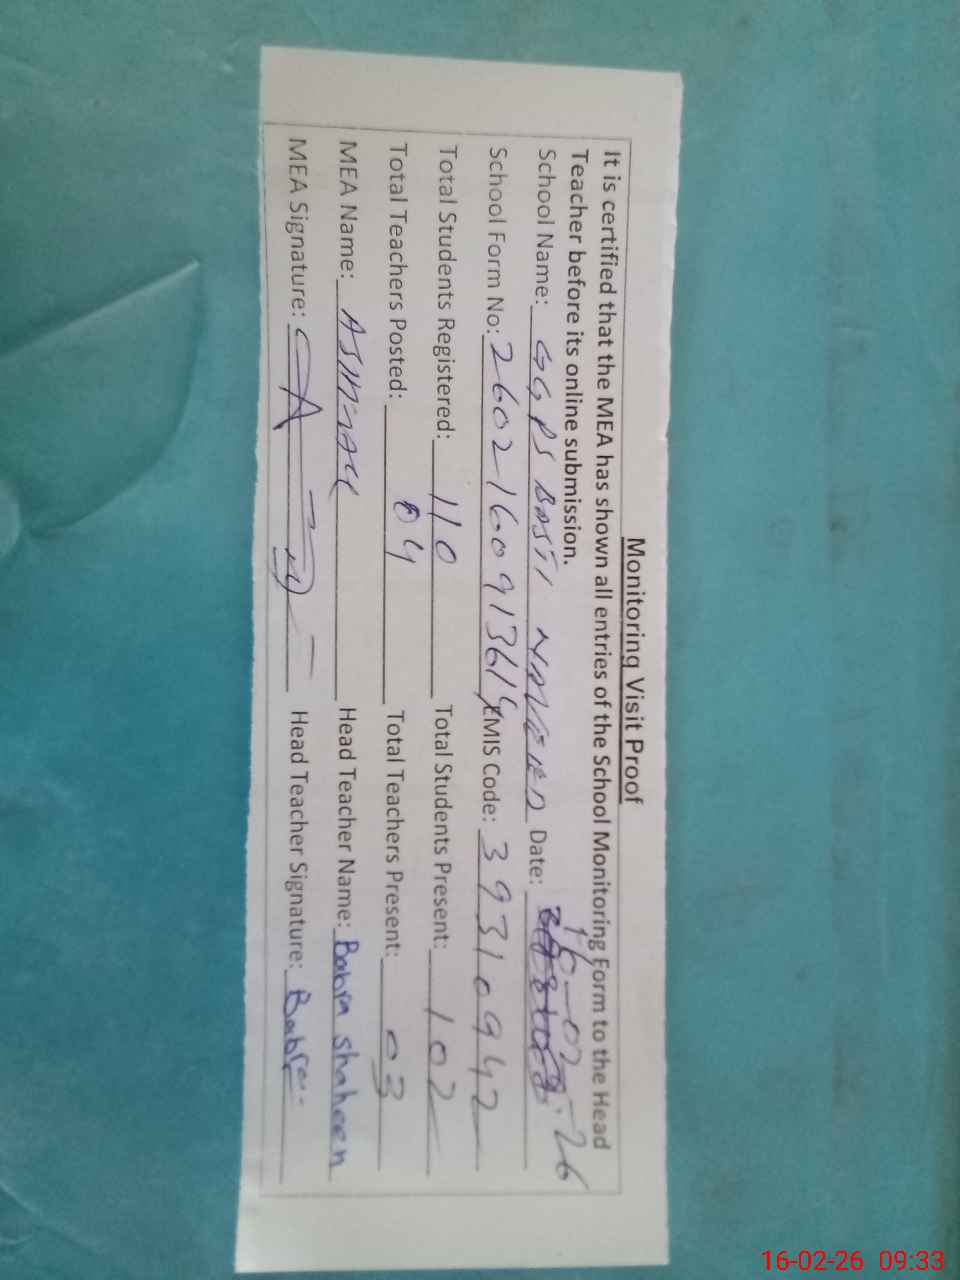 Monitoring Visit Proof
It is certified that the MEA has shown all entries of the School Monitoring Form to the Head
Teacher before its online submission.
School Name: GGPS BASTI NAVEED Date: 16-02-26
School Form No: 2602160913614 EMIS Code: 39310942
Total Students Registered: 110 Total Students Present: 102
Total Teachers Posted: 04 Total Teachers Present: 03
MEA Name: Head Teacher Name: Babra shaheen
MEA Signature: Head Teacher Signature: Babra
16-02-26 09:33